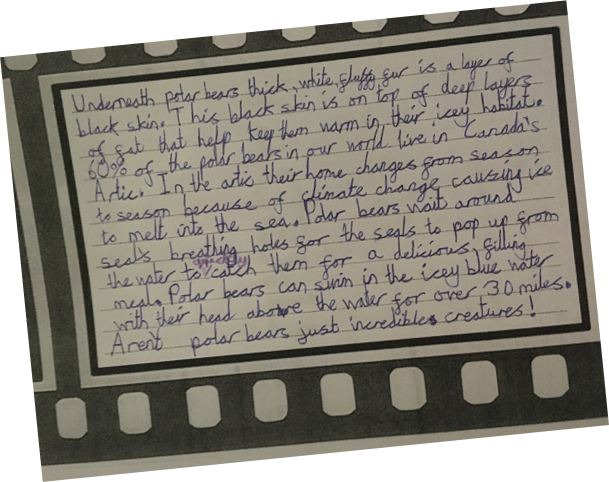 Underneath polar bears thick, white, fluffy fur is a layer of
black skin. This black skin is on top of deep layers
of fat that help keep them warm in their icey habitat.
60% of the polar bears in our world live in Canada's
Artic. In the artic their home changes from season
to season because of climate change causing ice
to melt into the sea. Polar bears wait around
seals breathing holes for the seals to pop up from
the water to catch them for a delicious, filling
meal. Polar bears can swim in the icey blue water
with their head above the water for over 30 miles.
Arent polar bears just incredible creatures!